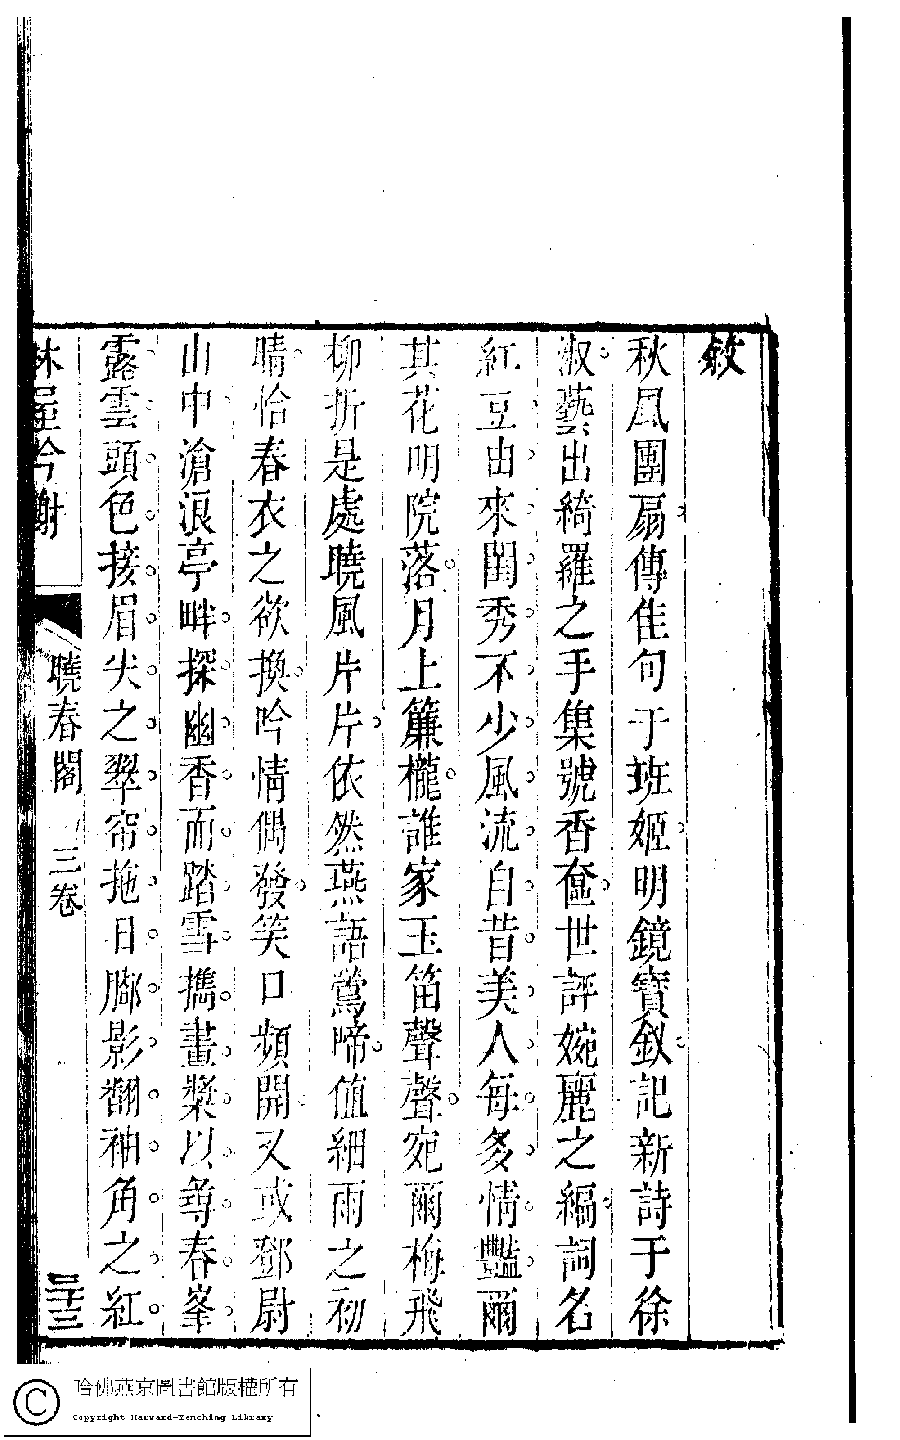 敘
秋風團扇傳佳句于班姬明鏡寶釵記新詩于徐
淑藝出綺羅之手集號香奩世評婉麗之編詞名
紅豆由來閨秀不少風流自昔美人每多情豔爾
其花明院落月上簾櫳誰家玉笛聲聲宛爾梅飛
柳折是處曉風片片依然燕語鶯啼值細雨之初
晴恰春衣之欲換吟情偶發笑口頻開又或鄧尉
山中滄浪亭畔探幽香而踏雪擕畫槳以尋春峯
露雲頭色接眉尖之翠帘拖日腳影翻袖角之紅
林屋吟榭
曉春閣 三卷
二十三
哈佛燕京圖書館版權所有
Copyright Harvard-Yenching Library